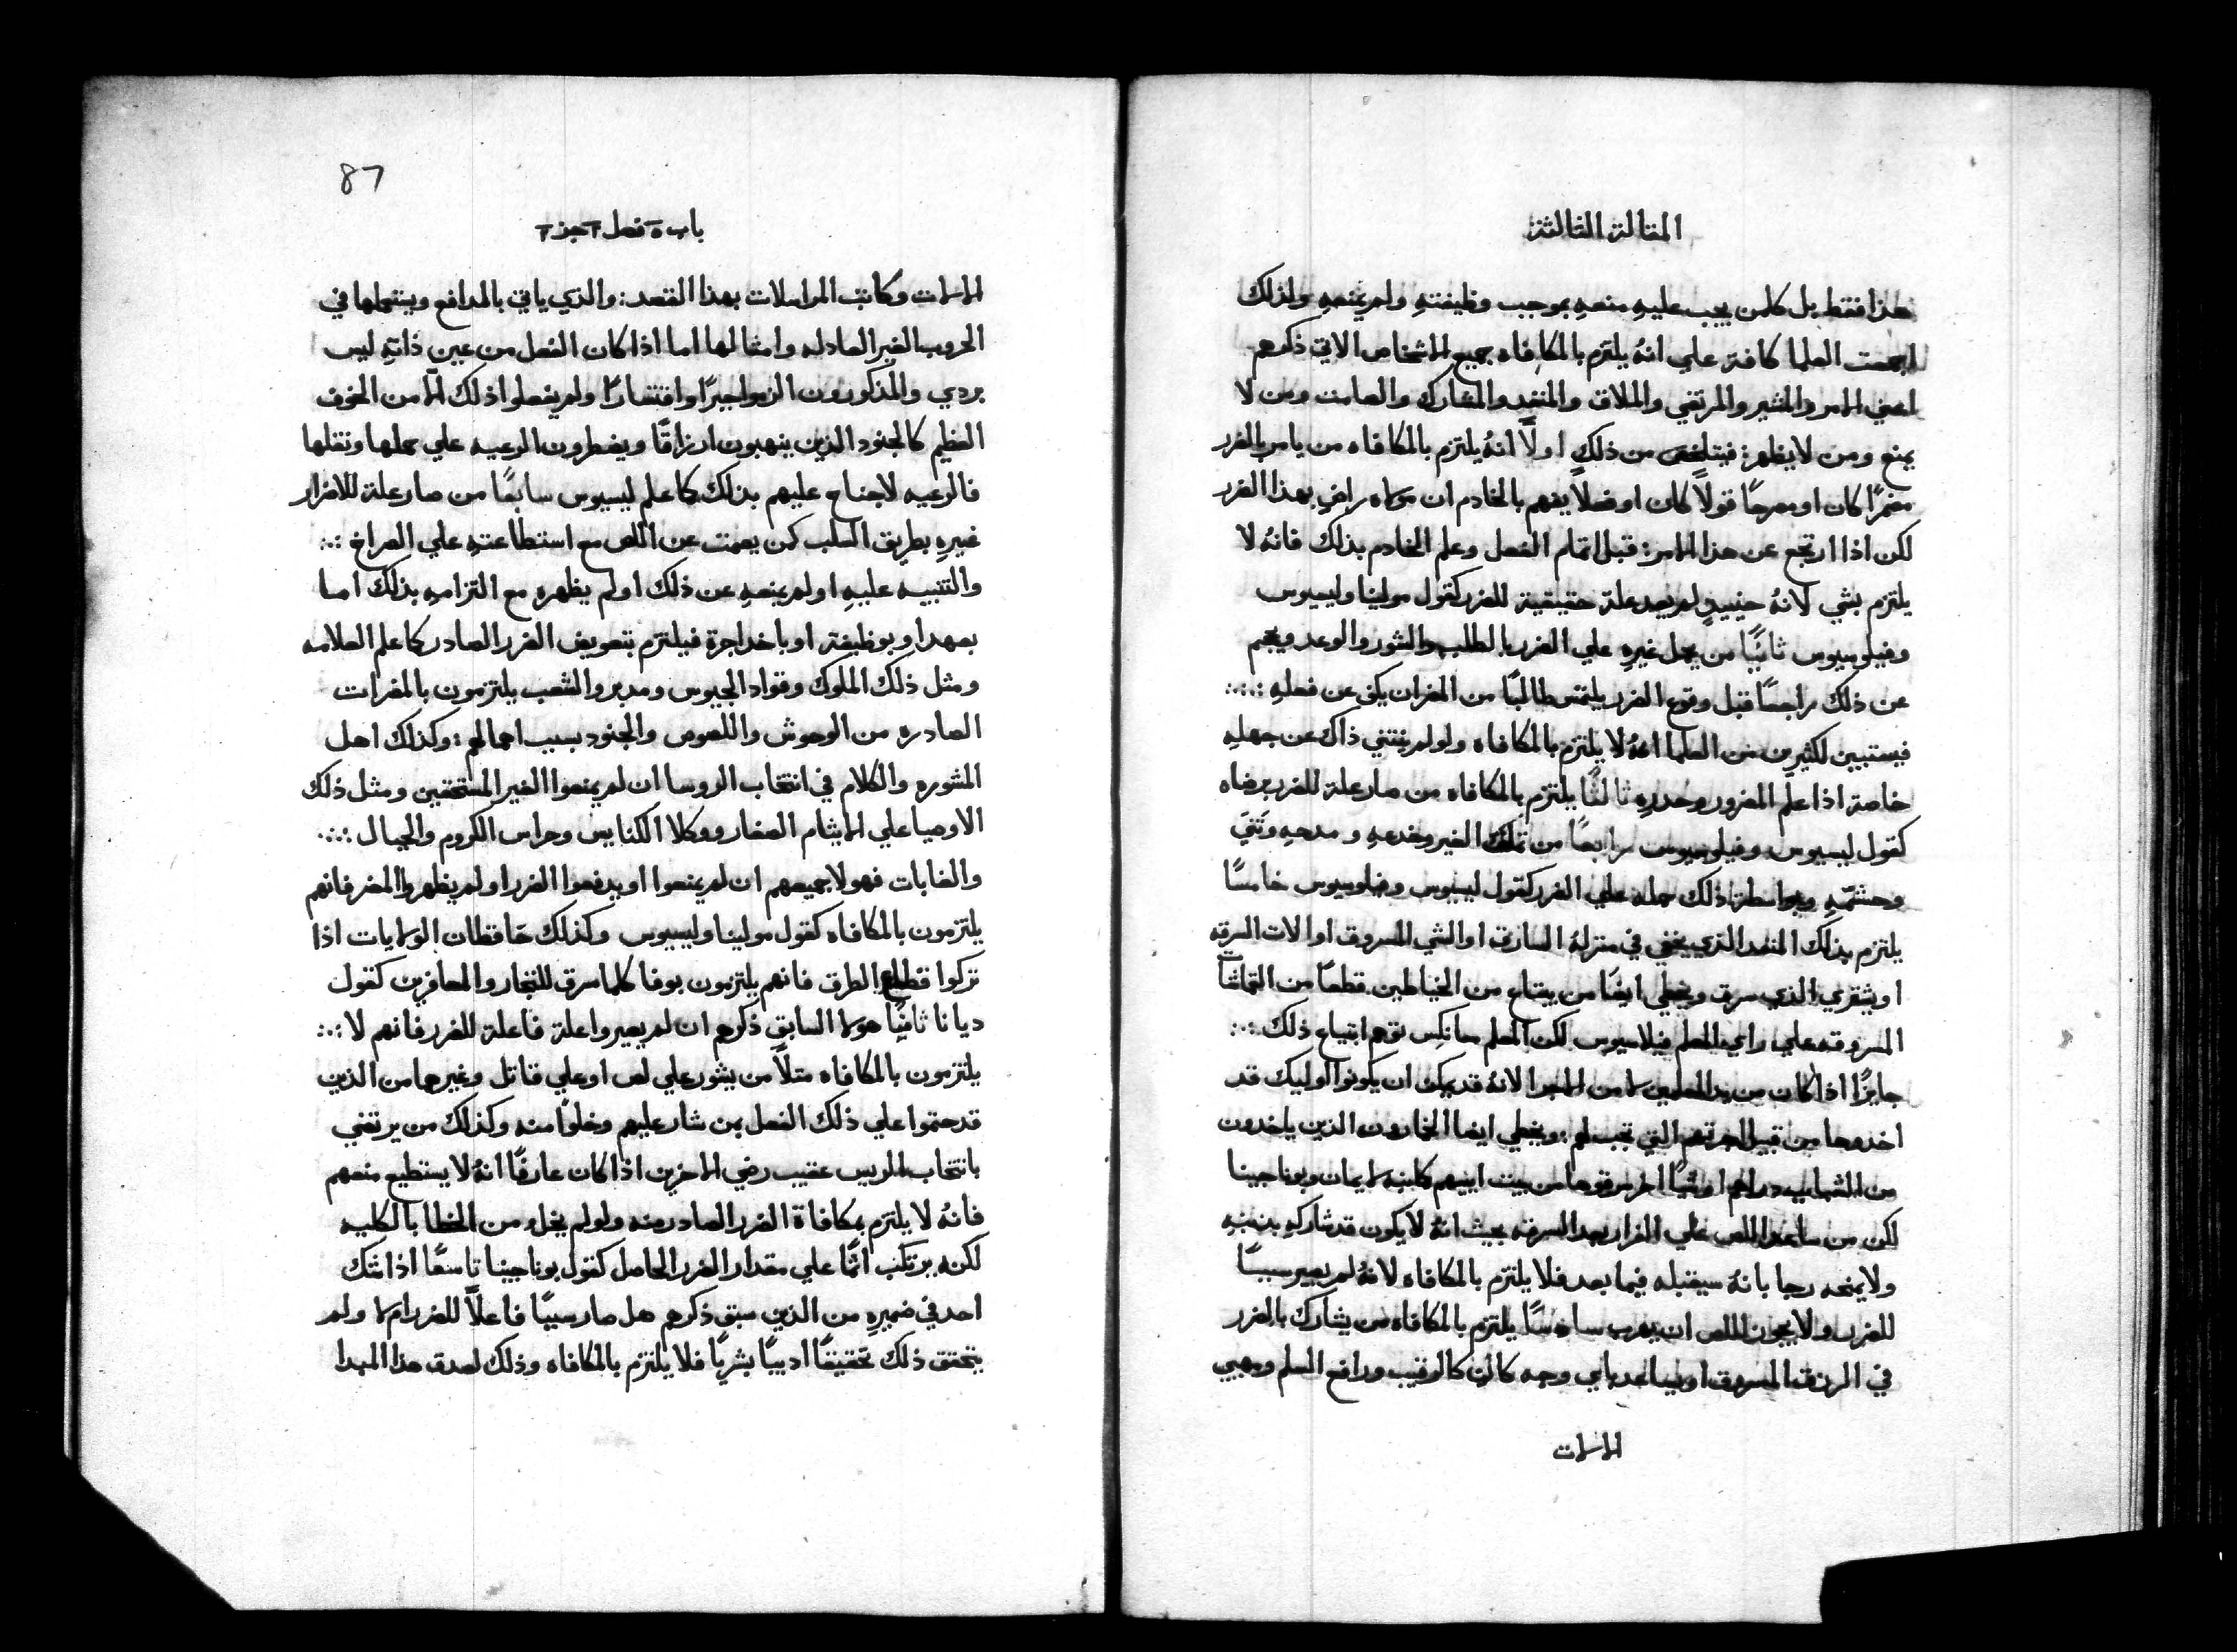 المقالة الثالثة
هذا فقط بل كلمن يجب عليهِ منعهِ بموجب وظيفتهِ ولم يمنعهِ ولذلك
اجمعت العلما كافة علي انهُ يلتزم بالمكافاه جميع الاشخاص الاتي ذكرهم
اعني الامر والمشير والمرتضي والملاق والمنقد والمشارك والصامت ومن لا
يمنع ومن لا يظهر: فيتلخص من ذلك اولاً انهُ يلتزم بالمكافاه من يامر بالضرر
مضمرًا كان او مصرحًا قولاً كان او فعلاً يفهم بالخادم ان مولاه راضٍ بهذا الضرر
لكن اذا ارتجع عن هذا الامر: قبل اتمام الفعل وعلم الخادم بذلك فانهُ لا
يلتزم بشي لانهُ حينيذٍ لم يعد علة حقيقية للضرر كقول مولينا وليسيوس
وفيلوسيوس ثانيًا من يحمل غيرهِ علي الضرر بالطلب والشور والوعد ويجم
عن ذلك راجعًا قبل وقوع الضرر يلتمس طالبًا من المضر ان يكف عن فعلهِ :·:·
فيستبين لكثيرين من العلما انهُ لا يلتزم بالمكافاه ولو لم ينثني ذاك عن جهلهِ
خاصة اذا علم المضرور وحدرهِ ثالثًا يلتزم بالمكافاه من صار علة للضرر برضاه
كقول ليسيوس وفيلوسيوس رابعًا من تملق الغير وخدعهِ ومدحهِ
وحشمهِ وبواسطة ذلك حمله علي الضرر كقول ليسيوس وفيلوسيوس خامسًا
يلتزم بذلك المنقد الذي يخفي في منزلهُ السارق او الشي المسروق او الات السرقه
او يشتري الذي سرق ويخطي ايضًا من يبتاع من الخياطين قطعًا من القماشات
المسروقه علي راي المعلم فيلاسيوس لكن المعلم سانكس توهم ابتياع ذلك :·:
جايزًا اذا كان من يد المعلمين لا من الاجرا لانهُ قد يمكن ان يكونوا اوليك قد
اخذوها من قبيل اجرتهم التي تجب لهم: ويخطي ايضا الخمارون الذين ياخدون
من الشباب دراهم او شيًا اخر سرقوها من بيت ابيهم كابنه لايمان وبوناجينا
لكن من ساعد اللص علي الفرار بعد السرقه بحيث انهُ لا يكون قد شاركهِ بذنبهِ
ولا يمنحه رجا بانهُ سيقبله فيما بعد فلا يلتزم بالمكافاه لانهُ لم يصير سببًا
للضرر ولا يجوز اللص ان يهرب سادسًا يلتزم بالمكافاه من يشارك بالضرر
في الرزق المسروق او يساعد باي وجه كان كالرقيب ورافع السلم ومهيي
الالات
87
باب ٥ فصل ٢ جز ٢
الالات وكاتب المراسلات بهذا القصد: والذي ياتي بالمدافع ويستعملها في
الحروب الغير العادله وامثالها اما اذا كان الفعل من عين ذاتهِ ليس
بردي والمذكورون الزموا جبرًا واقتسارًا ولم يفعلوا ذلك الا من الخوف
العظيم كالجنود الذين ينهبون ارزاقًا ويضطرون الرعيه علي حملها ونقلها
فالرعيه لا جناح عليهم بذلك كما علم ليسيوس سابعًا من صار علة للاضرار
غيرهِ بطريق السلب كمن يصمت عن اللص مع استطاعتهِ علي الصراخ :·:
والتنبيه عليهِ او لم يمنعهِ عن ذلك او لم يظهره مع التزامهِ بذلك اما
بعهد او بوظيفة او باخد اجرة فيلتزم بتعويض الضرر الصادر كما علم العلامه
ومثل ذلك الملوك وقواد الجيوس ومدبرو الشعب يلتزمون بالمضرات
الصادره من الوحوش واللصوص والجنود بسبب اهمالهم: وكذلك اهل
المشوره والكلام في انتخاب الروسا ان لم يمنعوا الغير المستحقين ومثل ذلك
الاوصيا علي الايثام الصغار ووكلا الكنايس وحراس الكروم والجبال :·:·
والغابات فهولا جميعهم ان لم يمنعوا او يدفعوا الضرر او لم يظهروا المضر فانهم
يلتزمون بالمكافاه كقول مولينا وليسيوس وكذلك حافظان الولايات اذا
تركوا قطاع الطرق فانهم يلتزمون بوفا كلما سرق للتجار والمسافرين كقول
ديانا ثامنًا هولا السابق ذكرهم ان لم يصيروا علة فاعلة للضرر فانهم لا :·:
يلتزمون بالمكافاه مثلاً من يشور علي لص او علي قاتل وغيرهما من الذين
قد حتموا علي ذلك الفعل بمن شار عليهم وخلوًا منه وكذلك من يرتضي
بانتخاب الريس عقيب رضي الاخرين اذا كان عارفًا انهُ لا يستطيع منعهم
فانهُ لا يلتزم بمكافاة الضرر الصادر منه ولو لم يخل من الخطا بالكليه
لكنه يرتكب اثمًا علي مقدار الضرر الحاصل كقول بوناجينا تاسعًا اذا شك
احد في ضميرهِ من الذين سبق ذكرهم هل صار سببًا فاعلاً للضرر ام لا ولم
يتحقق ذلك تحقيقًا ادبيًا بشريًا فلا يلتزم بالمكافاه وذلك لصدق هذا المبدا